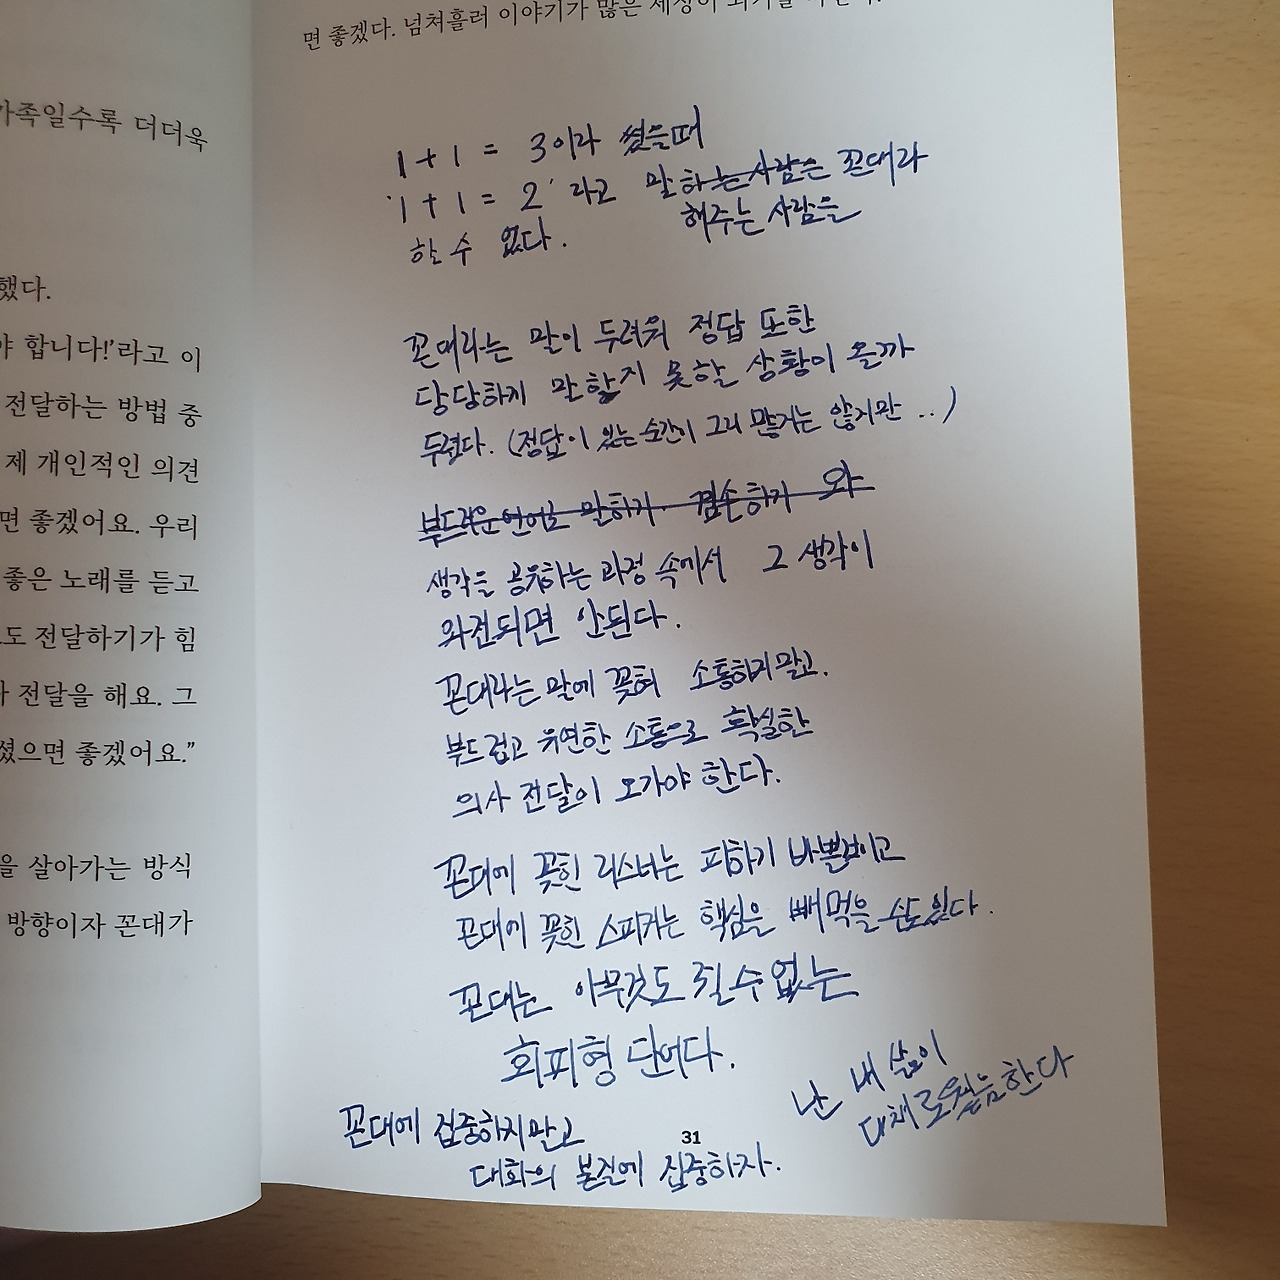 가족일수록 더더욱
했다.
야 합니다!'라고 이
전달하는 방법 중
제 개인적인 의견
면 좋겠어요. 우리
좋은 노래를 듣고
도 전달하기가 힘
전달을 해요. 그
셨으면 좋겠어요."
을 살아가는 방식
방향이자 꼰대가
면 좋겠다. 넘쳐흘러 이야기가 많은 세상이
1 + 1 = 3이라 썼을때
'1 + 1 = 2' 라고 말하는 사람은 꼰대라
해주는 사람을
할 수 없다.
꼰대라는 말이 두려워 정답 또한
당당하게 말할지 못할 상황이 올까
두렵다. (정답이 있는 순간이 그리 많거는 않지만 ..)
부드러운 언어로 말하기. 겸손하기 와
생각을 공유하는 과정 속에서 그 생각이
와전되면 안된다.
꼰대라는 말에 꽂혀 소통하지말고.
부드럽고 유연한 소통으로 확실한
의사 전달이 오가야 한다.
꼰대에 꽂힌 리스너는 피하기 바쁠것이고
꼰대에 꽂힌 스피커는 핵심을 빼먹을 수도있다.
꼰대는 아무것도 쥘 수 없는
회피형 단어다.
난 내 삶이
다채로웠음한다
꼰대에 집중하지말고
31
대화의 본질에 집중하자.